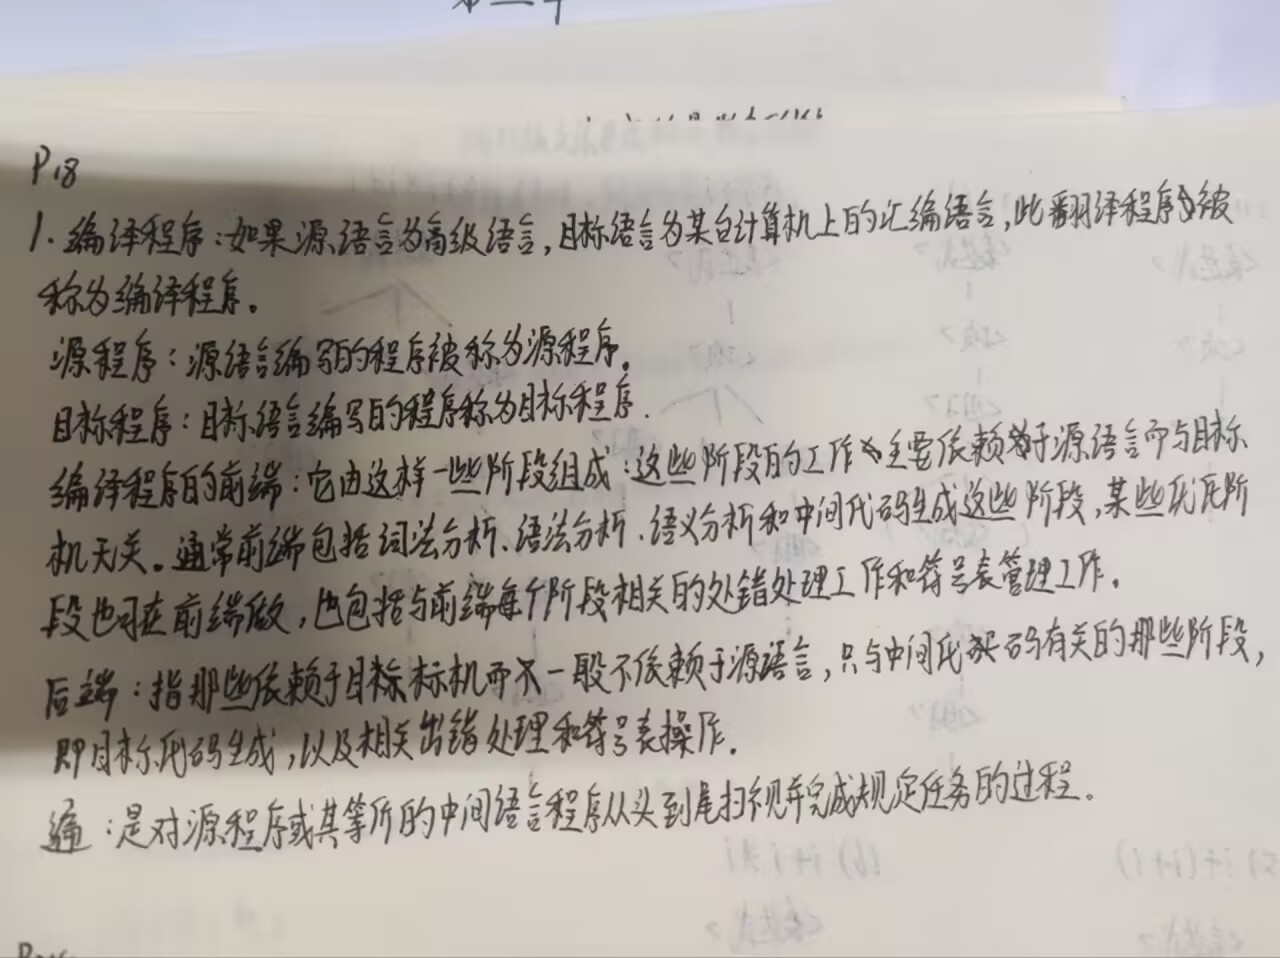 P18
1. 编译程序：如果源语言为高级语言，目标语言为某台计算机上的汇编语言，此翻译程序被
称为编译程序。
源程序：源语言编写的程序被称为源程序。
目标程序：目标语言编写的程序称为目标程序.
编译程序的前端：它由这样一些阶段组成：这些阶段的工作主要依赖于源语言而与目标
机无关。通常前端包括词法分析、语法分析、语义分析和中间代码生成这些阶段，某些优化阶
段也可在前端做，也包括与前端每个阶段相关的处错处理工作和符号表管理工作.
后端：指那些依赖于目标标机而不一般不依赖于源语言，只与中间代码有关的那些阶段，
即目标代码生成，以及相关出错处理和符号表操作.
遍：是对源程序或其等价的中间语言程序从头到尾扫视并完成规定任务的过程.
(b) i+i*i
i+(i+i)